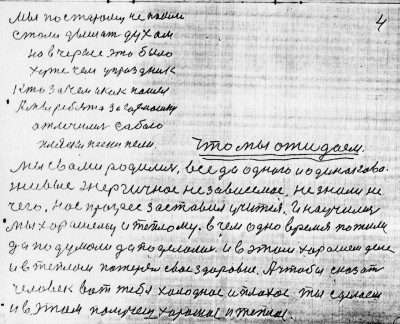 4
мы по старому не пошли
стали дышат духам
на вчераше это было
хуже чем у праздник
Кто зачем и как пошел
отличилис
пляски песни пели.
Что мы ожидаем.
Мы с вами родилис, все да одного и одинаково.
живые энергичное независемое, не знали не
чего, нас прогрес заставил учится. И научилис
мы харошему и теплому, в чем одно время пожили
да подумали да поделали. и в этом харошем деле
и в теплом потерял свое здаровие. А чтобы сказат
человек вот тебя холодное и плохое ты сделаеш
и в этом получеш харошое и теплое.